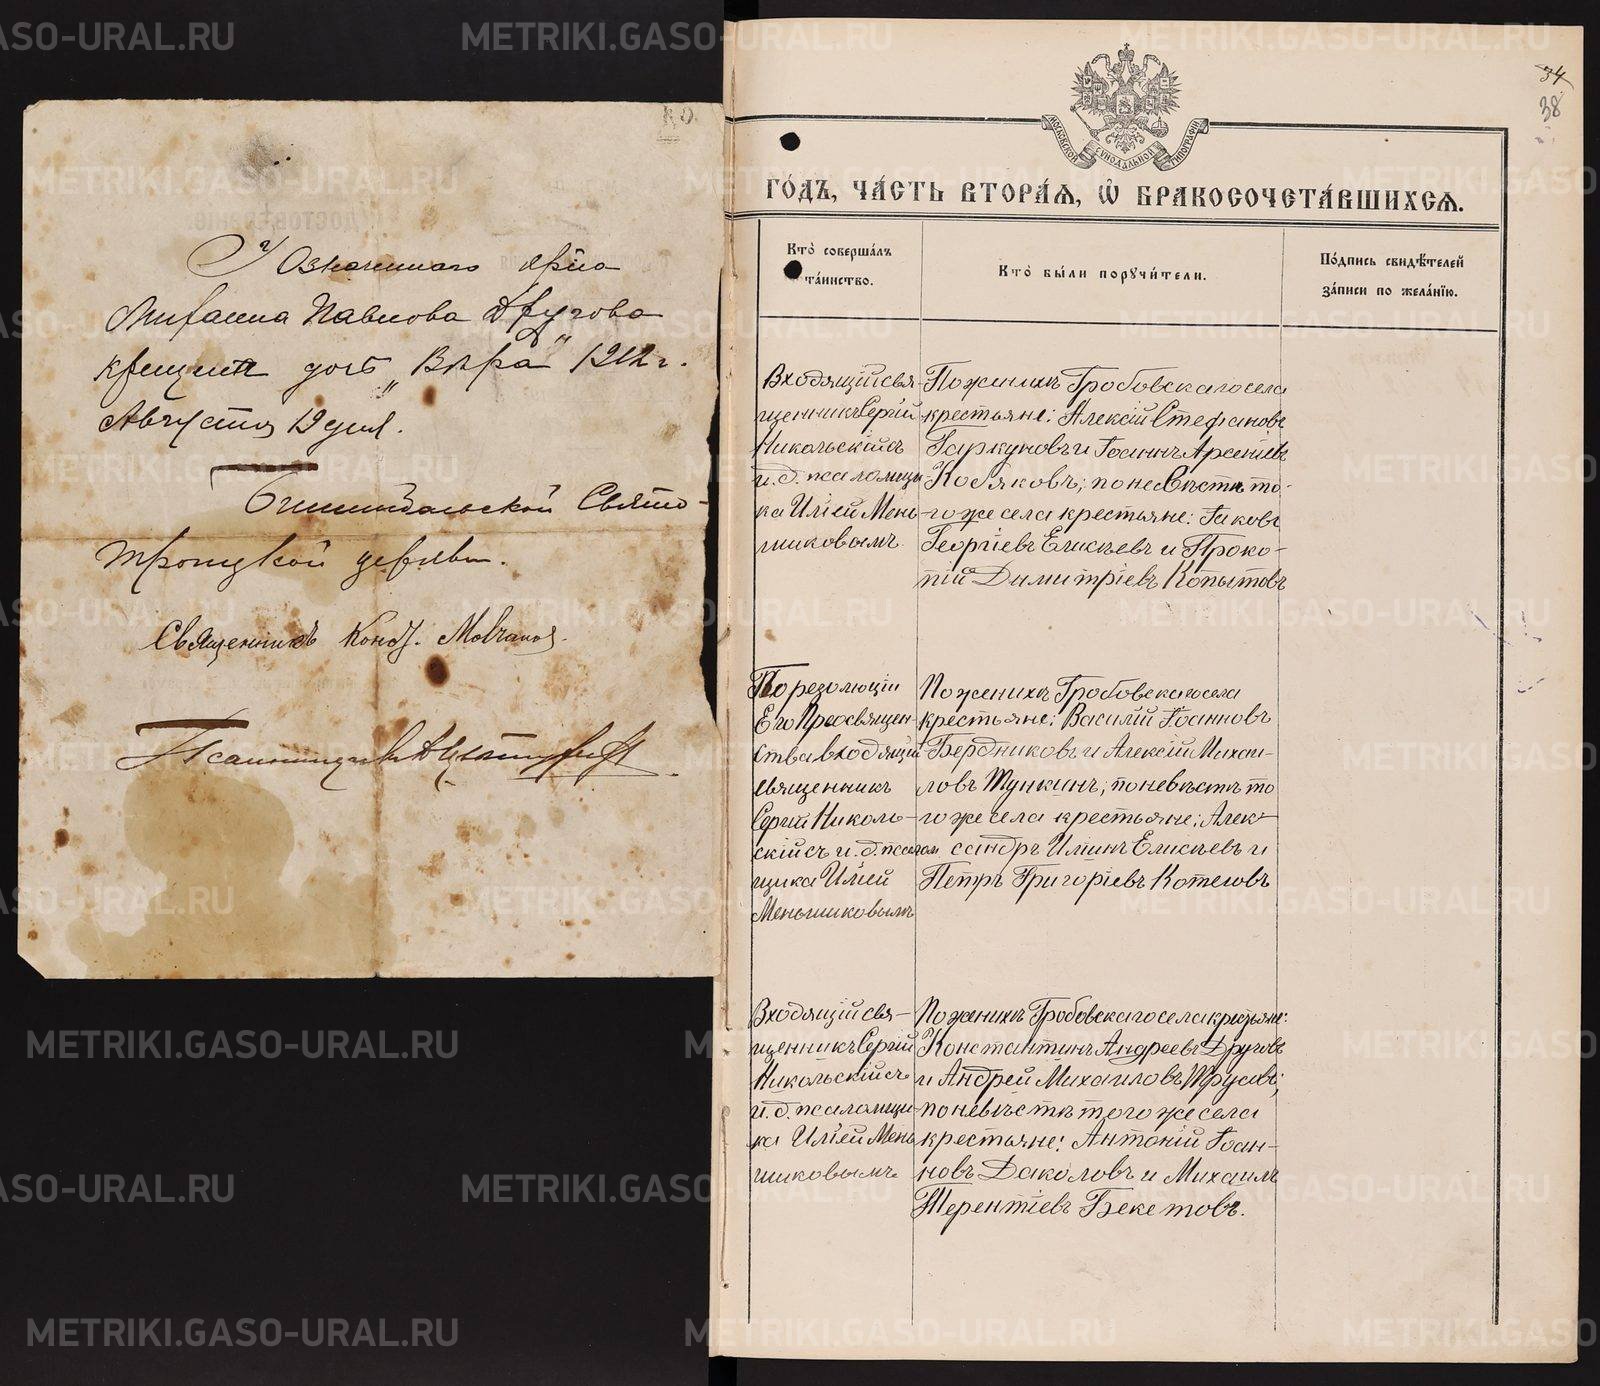 У Означеннаго Ерiо
Митаниа Павлова Другова
крещена дочь „Вѣра" 1912 г.
Августа 19 дня.
Свято-
Троицкой церкви.
Священникъ Конст. Мовчанов.
Псаломщикъ
34
38
МОСКОВСКОЙ СѴНОДАЛЬНОЙ ТИПОГРАФІИ
ГО́ДЪ, ЧА́СТЬ ВТОРА́Ѧ, Ѽ БРАКОСОЧЕТА́ВШИХСѦ.
Кто̀ соверша́лъ
та́инство.
Кто̀ бы́ли порꙋчи́тели.
По́дпись свидѣ́телей
за́писи по жела́нїю.
Входящій свя-
щенникъ Сергій
Никольскій съ
и. д. псаломщи
ка Иліей Мень
шиковымъ.
По женихѣ Гробовскаго села
крестьяне: Алексій Стефановъ
Гаркуновъ и Іоаннъ Арсеніевъ
Кобяковъ; по невѣстѣ то-
го же села крестьяне: Іаковъ
Георгіевъ Елисѣевъ и Проко-
пій Димитріевъ Копытовъ
По резолюціи
Его Преосвящен-
ства входящій
священникъ
Сергій Николь-
скій съ и. д. псалом
щика Иліей
Меньшиковымъ
По женихѣ Гробовскаго села
крестьяне: Василій Іоанновъ
Бердниковъ и Алексій Михаи-
ловъ Тункинъ; по невѣстѣ то
го же села крестьяне: Алек-
сандръ Илiинъ Елисѣевъ и
Петръ Григоріевъ Котеговъ
Входящій свя-
щенникъ Сергій
Никольскій съ
и. д. псаломщи
ка Иліей Мень
шиковымъ
По женихѣ Гробовскаго села крестьяне:
Константинъ Андреевъ Друговъ
и Андрей Михаиловъ Трусовъ;
по невѣстѣ того же села
крестьяне: Антоній Іоан-
новъ Даколовъ и Михаилъ
Терентіевъ Бекетовъ.
METRIKI.GASO-URAL.RU